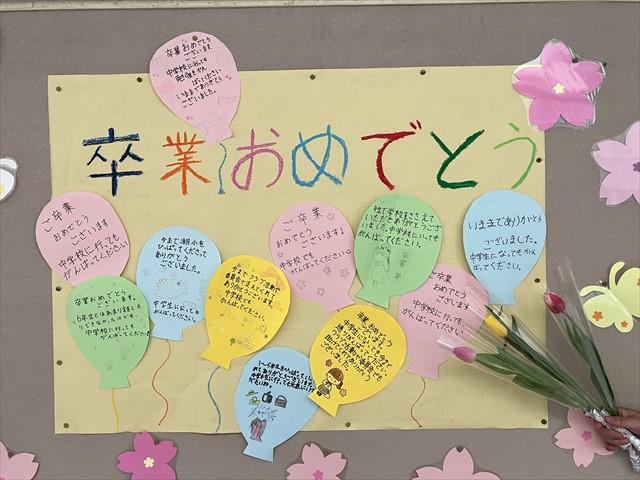 卒業おめでとう
ございます。
中学校に行っても
勉強をがん
ばってください
いままでありがとう
ございました。
卒業おめでとう
ご卒業
おめでとう
ございます
中学校に行っても
がんばってください
今まで潮小を
ひっぱってくださって
ありがとう
ございました。
中学生になっても
がんばってください。
今までクラブ活動や
委員会で支えてくれて
ありがとうございます。
中学校でも
がんばってください。
ご卒業
おめでとう
ございます!
中学校でも
がんばってください。
今まで学校をささえて
いただきありがとうござ
いました。中学校にいっても
がんばってください。
いままでありがとう
ございました。
中学生になってもがん
ばってください。
卒業おめでとう
ございます。
6年生とはあまり話した
りできなかったけど、
中学校に行っても
がんばってください
ご卒業
おめでとう
ございます。
中学校に行っても、
がんばってください。
卒業おめでとう
ございます。